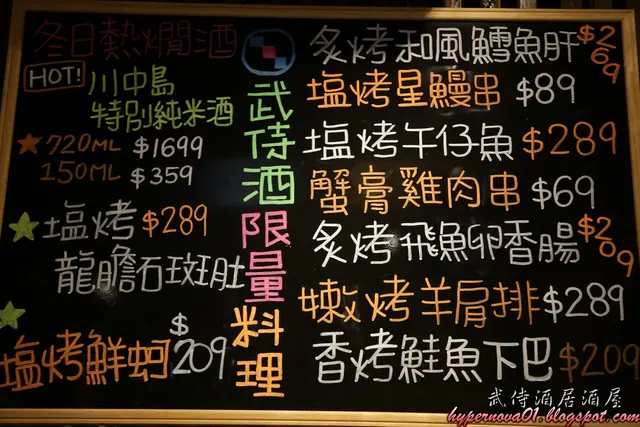 冬日熱燗酒
HOT!
川中島
特別純米酒
720ML $1699
150ML $359
塩烤 $289
龍膽石斑肚
塩烤鮮蚵 $209
武侍酒限量料理
炙烤和風鱈魚肝 $269
塩烤星鰻串 $89
塩烤午仔魚 $289
蟹膏雞肉串 $69
炙烤飛魚卵香腸 $209
嫩烤羊肩排 $289
香烤鮭魚下巴 $209
武侍酒居酒屋
hypernova01.blogspot.com